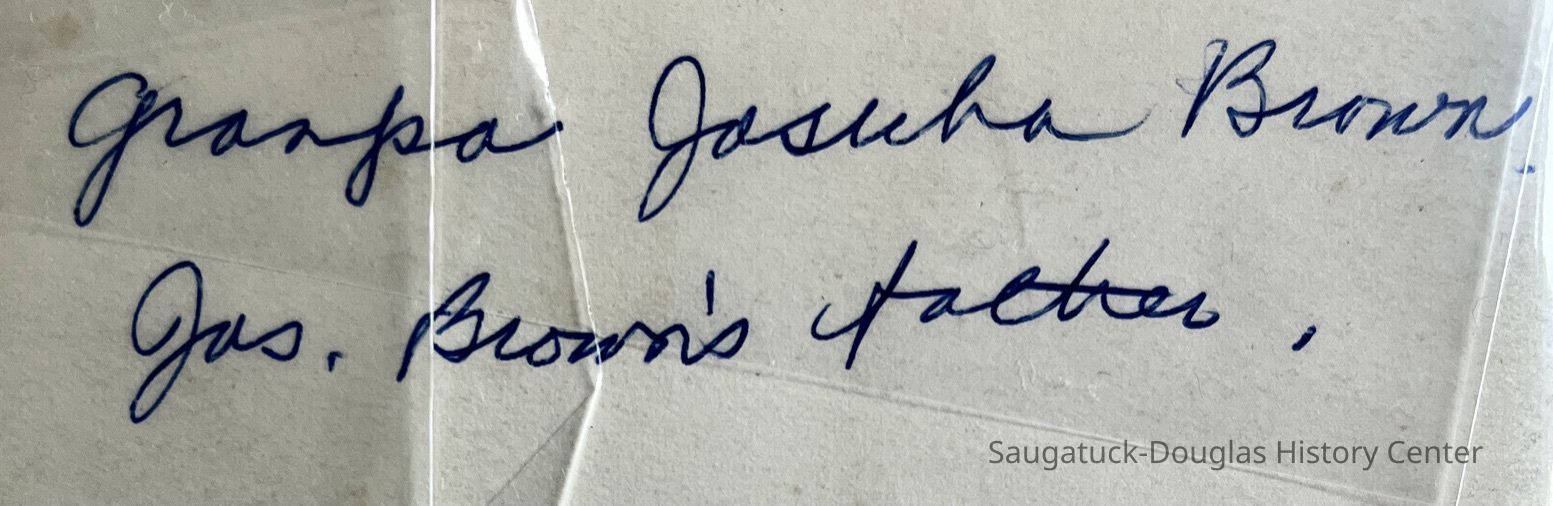 Granpa Josuha Brown.
Jas. Brown's father.
Saugatuck-Douglas History Center